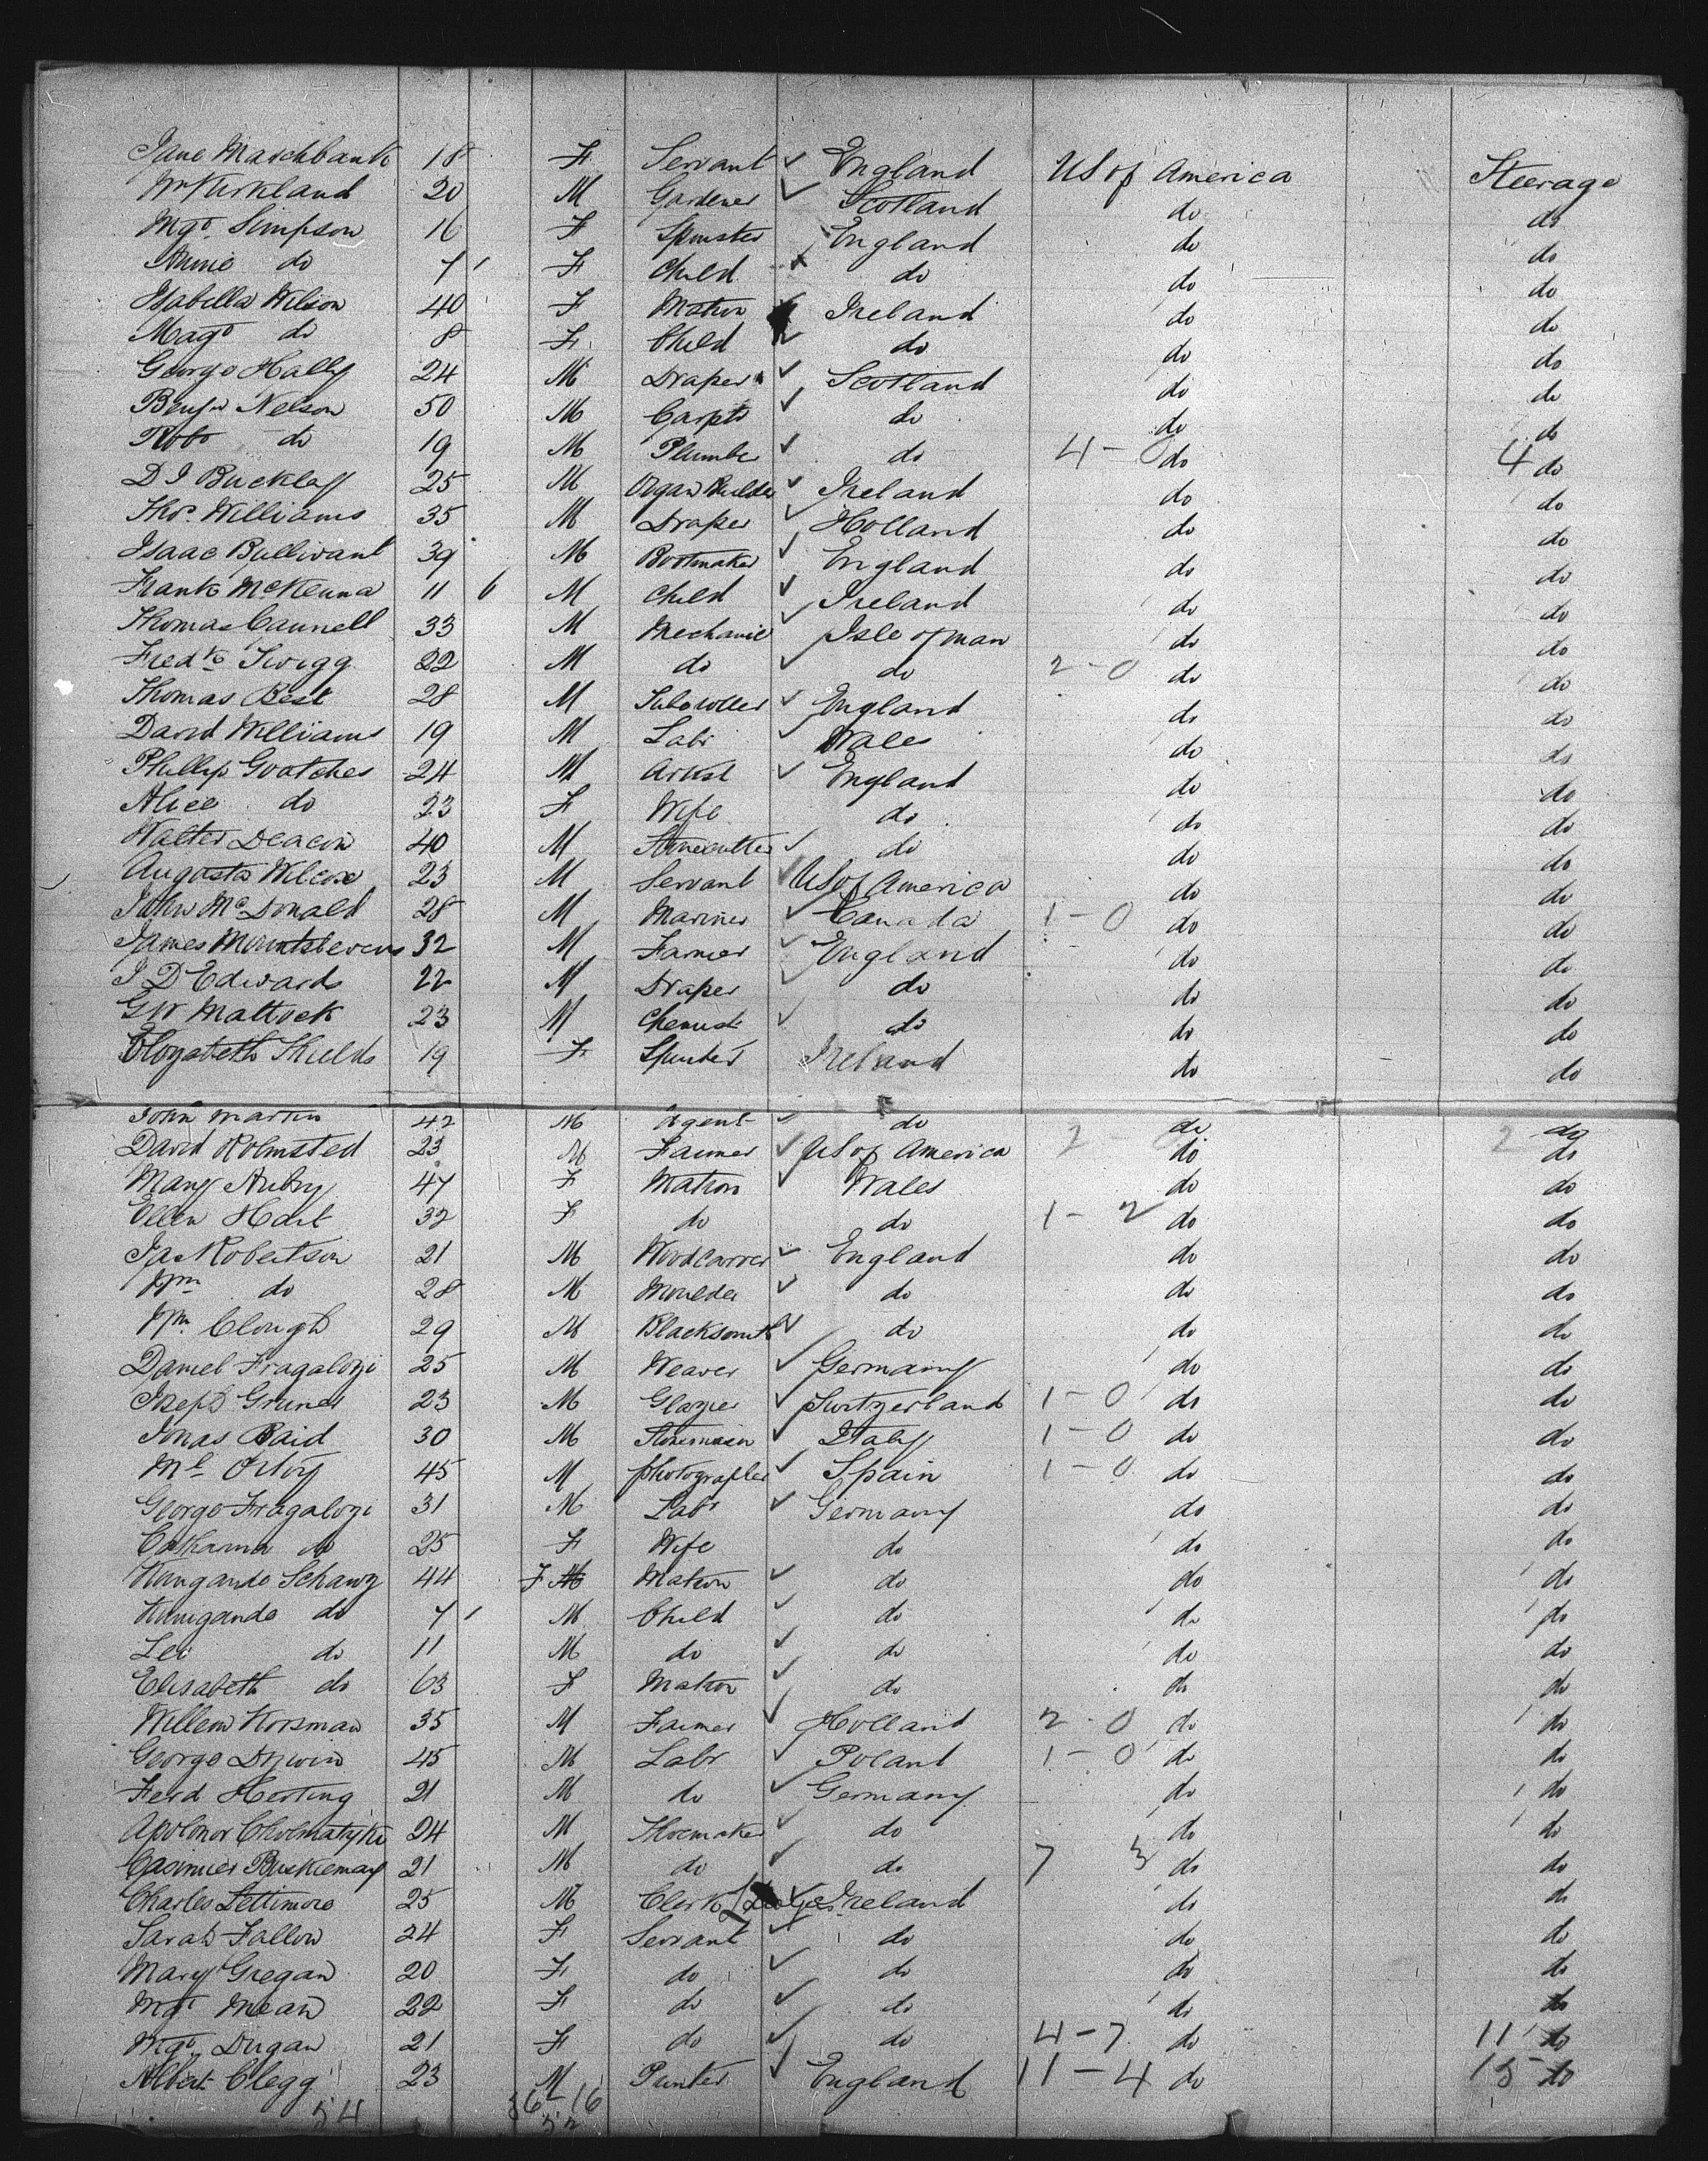 Jane Marchbank 18 F Servant England US of America Steerage
Wm Kirkland 20 M Gardener Scotland do do
Mgt Simpson 16 F Spinster England do do
Annie do 7 F Child do do do
Isabella Wilson 40 F Matron Ireland do do
Magt do 8 F Child do do do
George Hally 24 M Draper Scotland do do
Benjn Nelson 50 M Carptr do do do
Robt do 19 M Plumber do 4-0 do 4 do
D I Buckley 25 M Organ Builder Ireland do do
Thos. Williams 35 M Draper Holland do do
Isaac Bullivant 39 M Bootmaker England do do
Frank McKenna 11 6 M Child Ireland do do
Thomas Cannell 33 M Mechanic Isle of man do do
Fredk Twigg 22 M do do 2-0 do do
Thomas Best 28 M England do do
David Williams 19 M Labr Wales do do
Phillip Goatcher 24 M Artist England do do
Alice do 23 F Wife do do do
Walter Deacon 40 M Stonecutter do do do
Augusta Wilcox 23 M Servant US of America do do
John McDonald 28 M Mariner Canada 1-0 do do
James Mountstevens 32 M Farmer England do do
J D Edwards 22 M Draper do do do
GW Mattock 23 M Chemist do do do
Elizabeth Shields 19 F Spinster Ireland do do
John Martin 42 M Agent do do do
David Holmsted 23 M Farmer US of America 2 do 2 do
Mary Aubry 47 F Matron Wales do do
Ellen Hart 32 F do do 1-2 do do
Jas Robertson 21 M Woodcarver England do do
Wm do 28 M Moulder do do do
Wm Clough 29 M Blacksmith do do do
Daniel Fragalozi 25 M Weaver Germany do do
Joseph Gruner 23 M Glazier Switzerland 1-0 do do
Jonas Baid 30 M Stonemason Italy 1-0 do do
Ml 45 M Photographer Spain 1-0 do do
George Fragalozi 31 M Labr Germany do do
Catharina do 25 F Wife do do do
Schawz 44 F M Matron do do do
do 7 M Child do do do
Leo do 11 M do do do do
Elisabeth do 63 F Matron do do do
Willem Korsman 35 M Farmer Holland 2-0 do do
George 45 M Labr Poland 1-0 do do
Ferd Herting 21 M do Germany do do
24 M Shoemaker do do do
Casimier 21 M do do 7 3 do do
Charles Lettimore 25 M Clerk Ireland do do
Sarah Fallow 24 F Servant do do do
Mary Gregan 20 F do do do do
Mgt Mean 22 F do do do do
Mgt Dugan 21 F do do 4-7 do 11 do
Albert Clegg 23 M Printer England 11-4 do 15 do
54 36-16
52